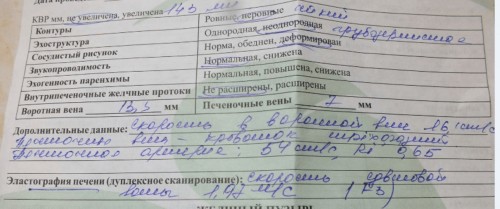 КВР мм, не увеличена, увеличена 143 мм
Контуры Ровные, неровные
Эхоструктура Однородная, неоднородная
Сосудистый рисунок Норма, обеднен, деформирован
Звукопроводимость Нормальная, снижена
Эхогенность паренхимы Нормальная, повышена, снижена
Внутрипеченочные желчные протоки Не расширены, расширены
Воротная вена 13,5 мм Печеночные вены 7 мм
Дополнительные данные: скорость в воротной вене 16,1 см/с
вены - кровоток
артерия: 54 см/с, Ri 0,65
Эластография печени (дуплексное сканирование): скорость сдвиговой
волны 1,97 м/с (F3)
ЖЕЛЧНЫЙ ПУЗЫРЬ